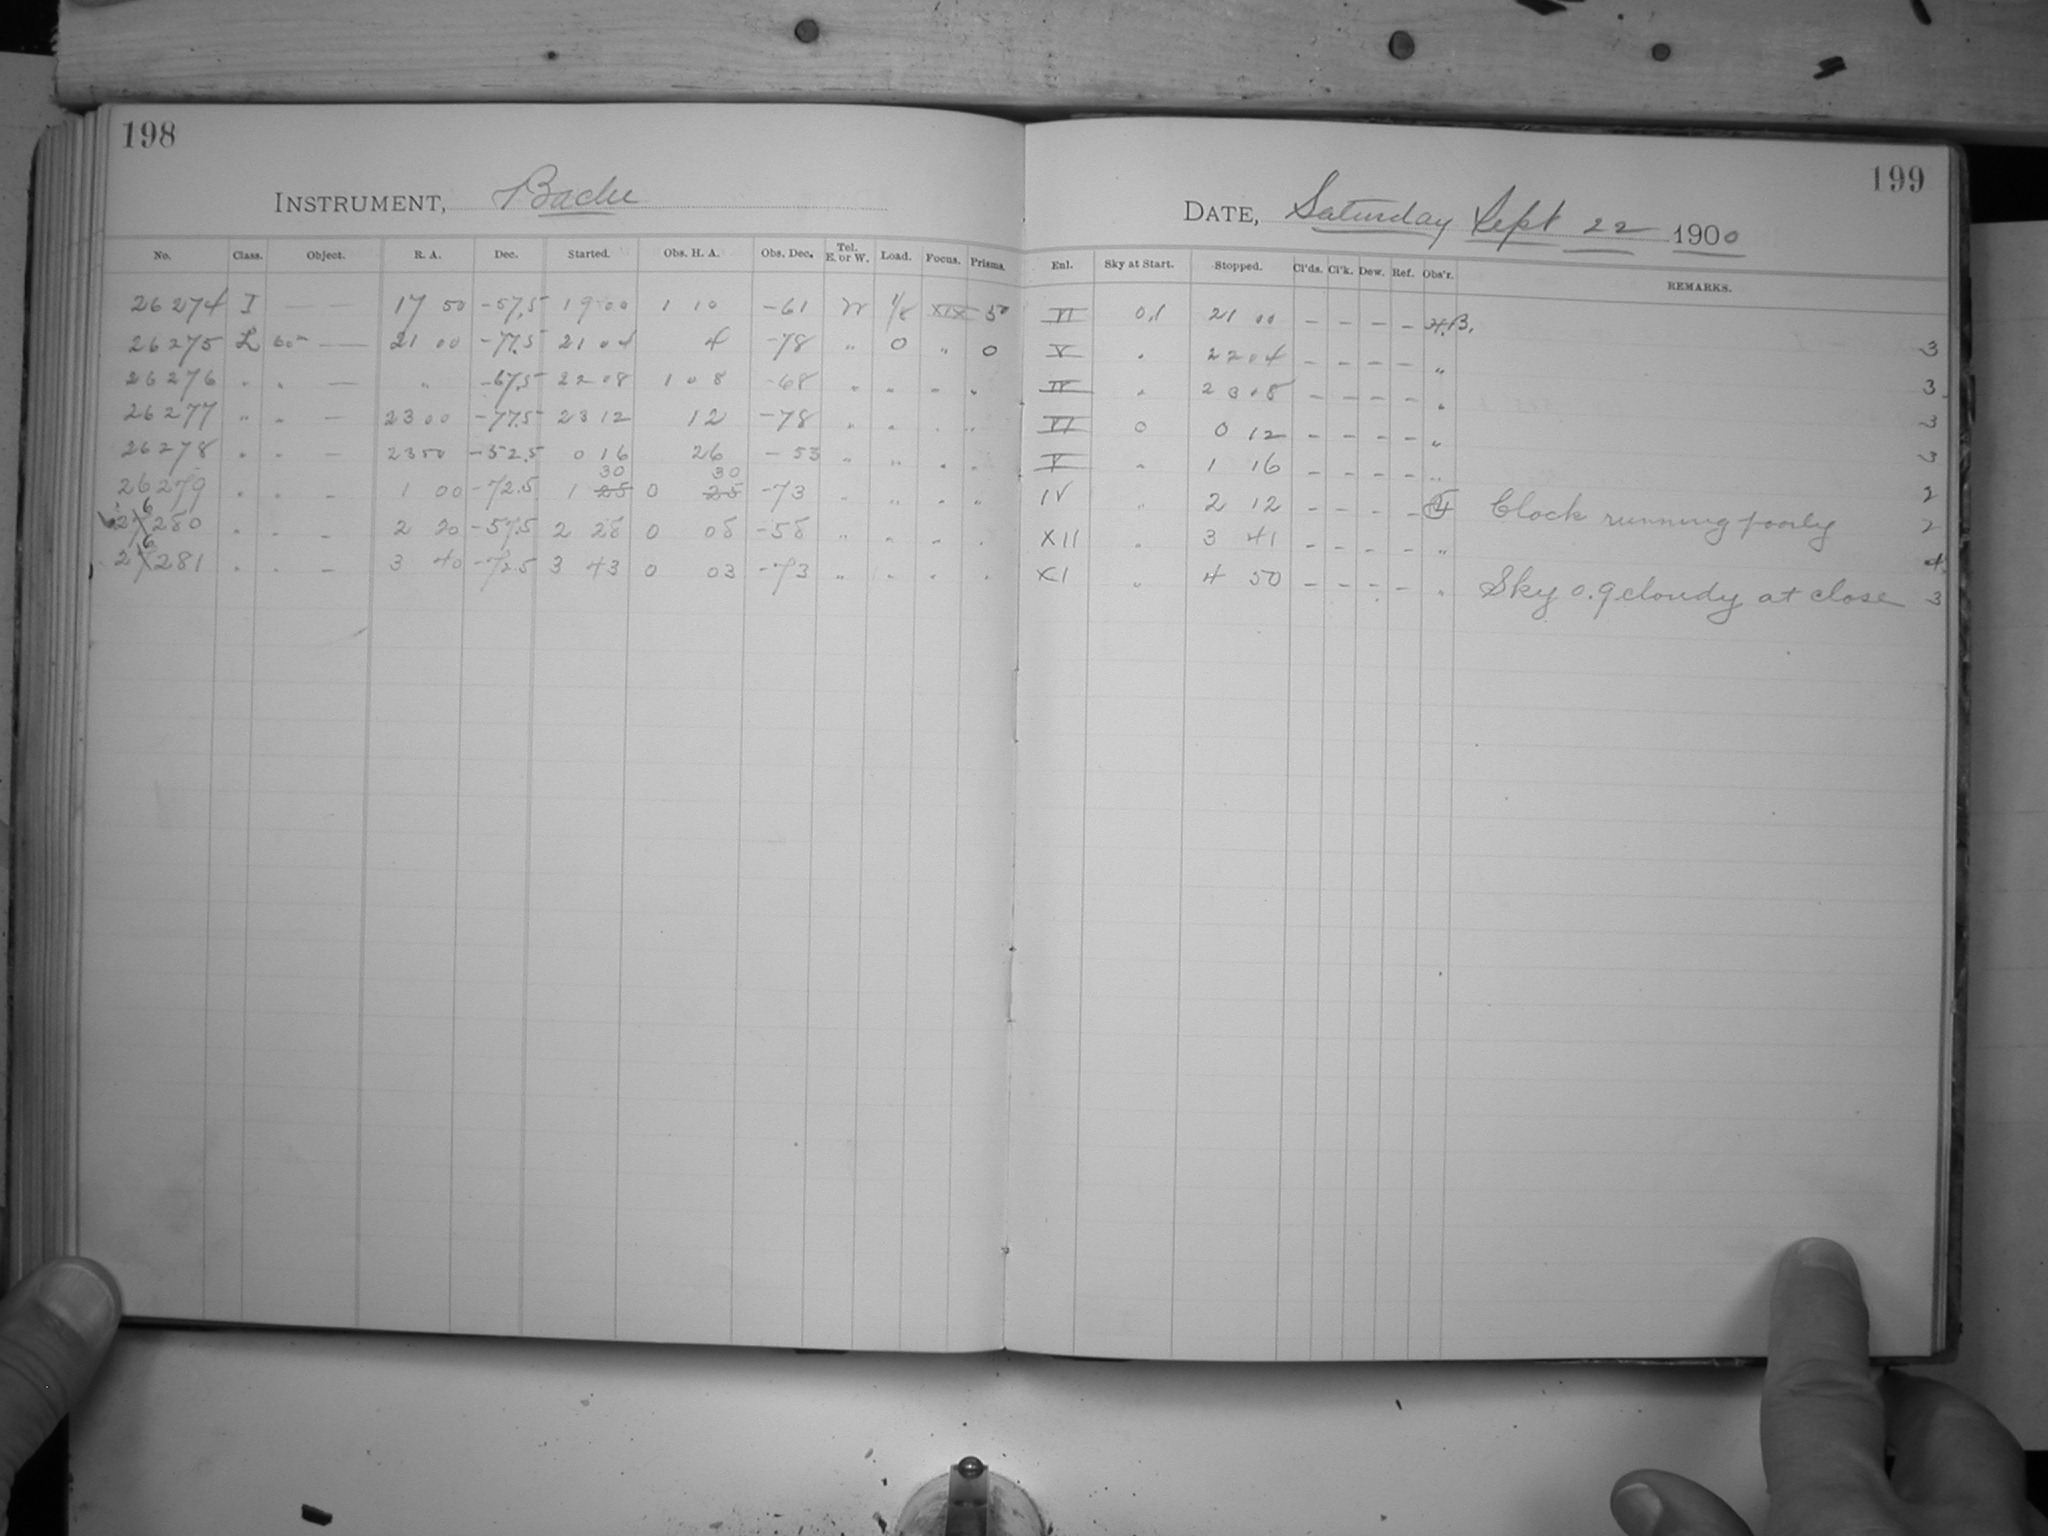 198
INSTRUMENT, Bache
No. Class. Object. R. A. Dec. Started. Obs. H. A. Obs. Dec. Tel. E. or W. Load. Focus. Prisms.
26274 I — — 17 50 -57.5 19 00 1 10 -61 W 1/8 XIX 50
26275 L 60m — 21 00 -77.5 21 04 4 -78 " 0 " 0
26276 " " — " -67.5 22 08 1 08 -68 " " " "
26277 " " — 23 00 -77.5 23 12 12 -78 " " " "
26278 " " — 23 50 -52.5 0 16 26 -53 " " " "
30 30
26279 " " — 1 00 -72.5 1 25 0 25 -73 " " " "
6
27280 " " — 2 20 -57.5 2 28 0 08 -58 " " " "
6
27281 " " — 3 40 -72.5 3 43 0 03 -73 " " " "
199
DATE, Saturday Sept 22 1900
Enl. Sky at Start. Stopped. Cl'ds. Cl'k. Dew. Ref. Obs'r. REMARKS.
VI 0.1 21 00 — — — —
V " 22 04 — — — — " 3
IV " 23 08 — — — — " 3
VI 0 0 12 — — — — " 3
V " 1 16 — — — — " 3
IV " 2 12 — — — — Clock running poorly 2
XII " 3 41 — — — — " 2
4
XI " 4 50 — — — — " Sky 0.9 cloudy at close 3